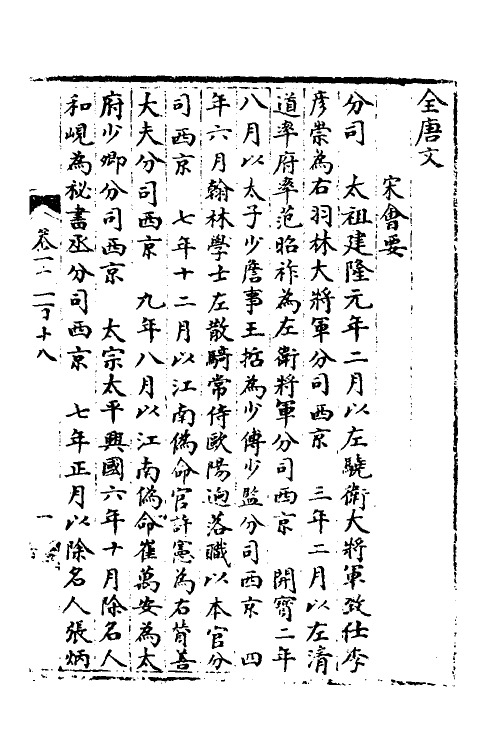 全唐文
宋會要
分司　太祖建隆元年二月以左驍衛大將軍致仕李
彥崇為右羽林大將軍分司西京　三年二月以左清
道率府率范昭祚為左衛將軍分司西京　開寶二年
八月以太子少詹事王恬為少傅少監分司西京　四
年六月翰林學士左散騎常侍歐陽迥落職以本官分
司西京　七年十二月以江南偽命官許憲為右贊善
大夫分司西京　九年八月以江南偽命崔萬安為太
府少卿分司西京　太宗太平興國六年十月除名人
和峴為秘書丞分司西京　七年正月以除名人張炳
一